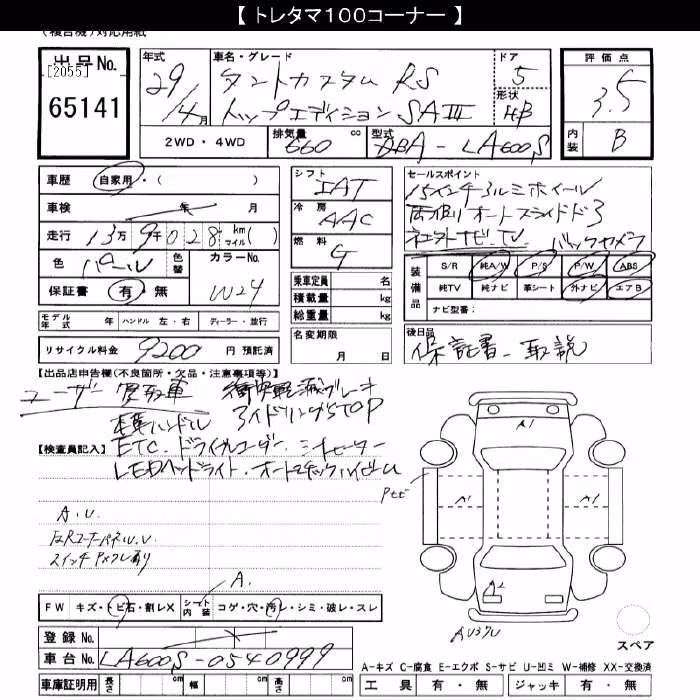 【 トレタマ100コーナー 】
(複合機)対応用紙
出品No.
[2055]
65141
年式 29/4月
車名・グレード タントカスタム RS
トップエディション SAⅢ
ドア 5
形状 HB
評価点 3.5
内装 B
2WD・4WD
排気量 660 cc
型式 DBA-LA600S
車歴 自家用・( )
車検 年 月
走行 13万9028 km マイル( )
色 パール 色替 カラーNo. W24
保証書 有・無
モデル年式 年 ハンドル 左・右 ディーラー・並行
リサイクル料金 9200 円 預託済
シフト IAT
冷房 AAC
燃料 G
乗車定員 名
積載量 kg
総重量 kg
名変期限 月 日
セールスポイント
15インチアルミホイール
両側オートスライドドア
ネット ナビ.TV バックカメラ
装備品
S/R 純A/W P/S P/W ABS
純TV 純ナビ 革シート 外ナビ エアB
ナビ型番:
後日品
保証書_取説
【出品店申告欄(不良箇所・欠品・注意事項等)】
ユーザー買取車 衝突軽減ブレーキ
革ハンドル アイドリングSTOP
【検査員記入】
ETC.ドライブレコーダー.シートヒーター
LEDヘッドライト.オートマチックハイビーム
A.U.
左Rコーナーパネル U.
スイッチ
A.
FW キズ・トビ石・割レX シート内装 コゲ・穴・汚レ・シミ・破レ・スレ
登録No.
車台No. LA600S-0540999
車庫証明用 長さ cm 幅 cm 高さ cm
A1
A1
A1
A2
スペア
A-キズ C-腐食 E-エクボ S-サビ U-凹ミ W-補修 XX-交換済
工具 有・無 ジャッキ 有・無